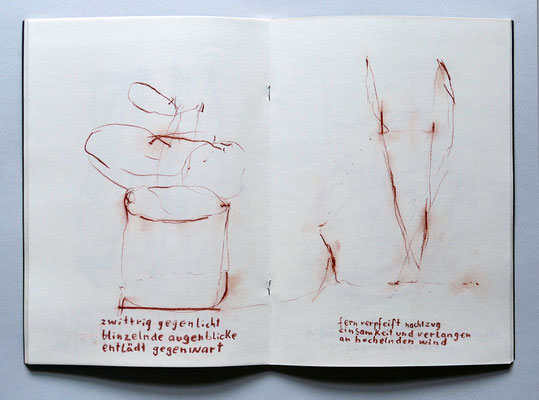 zwittrig gegenlicht
blinzelnde augenblicke
entlädt gegenwart
fern verpfeift nachtzug
einsamkeit und verlangen
an hechelnden wind